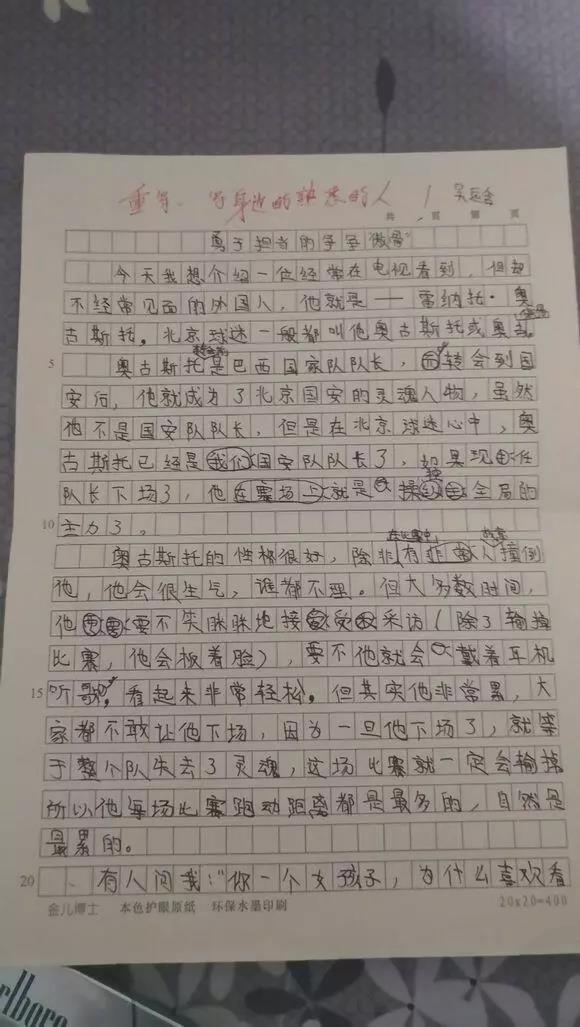 重写、写身边的熟悉的人 1
共 页 第 页
勇于担当的
今天我想介绍一位经常在电视看到,但却
不经常见面的外国人,他就是——雷纳托·奥
古斯托。北京球迷一般都叫他奥古斯托或奥古。
5 奥古斯托是巴西国家队队长,转会到国
安后,他就成为了北京国安的灵魂人物,虽然
他不是国安队队长,但是在北京球迷心中,奥
古斯托已经是我们国安队队长了,如果现任
队长下场了,他在赛场上就是操全局的
10 主力了。
在比赛中 故意
奥古斯托的性格很好,除非有人撞倒
他,他会很生气,谁都不理。但大多数时间,
他要不笑眯眯地接受采访(除了输掉
比赛,他会板着脸),要不他就会戴着耳机
15 听歌,看起来非常轻松。但其实他非常累,大
家都不敢让他下场,因为一旦他下场了,就等
于整个队失去了灵魂,这场比赛就一定会输掉
所以他每场比赛跑动距离都是最多的,自然是
最累的。
20 有人问我:“你一个女孩子,为什么喜欢看
金儿博士 本色护眼原纸 环保水墨印刷 20x20=400
rlboro